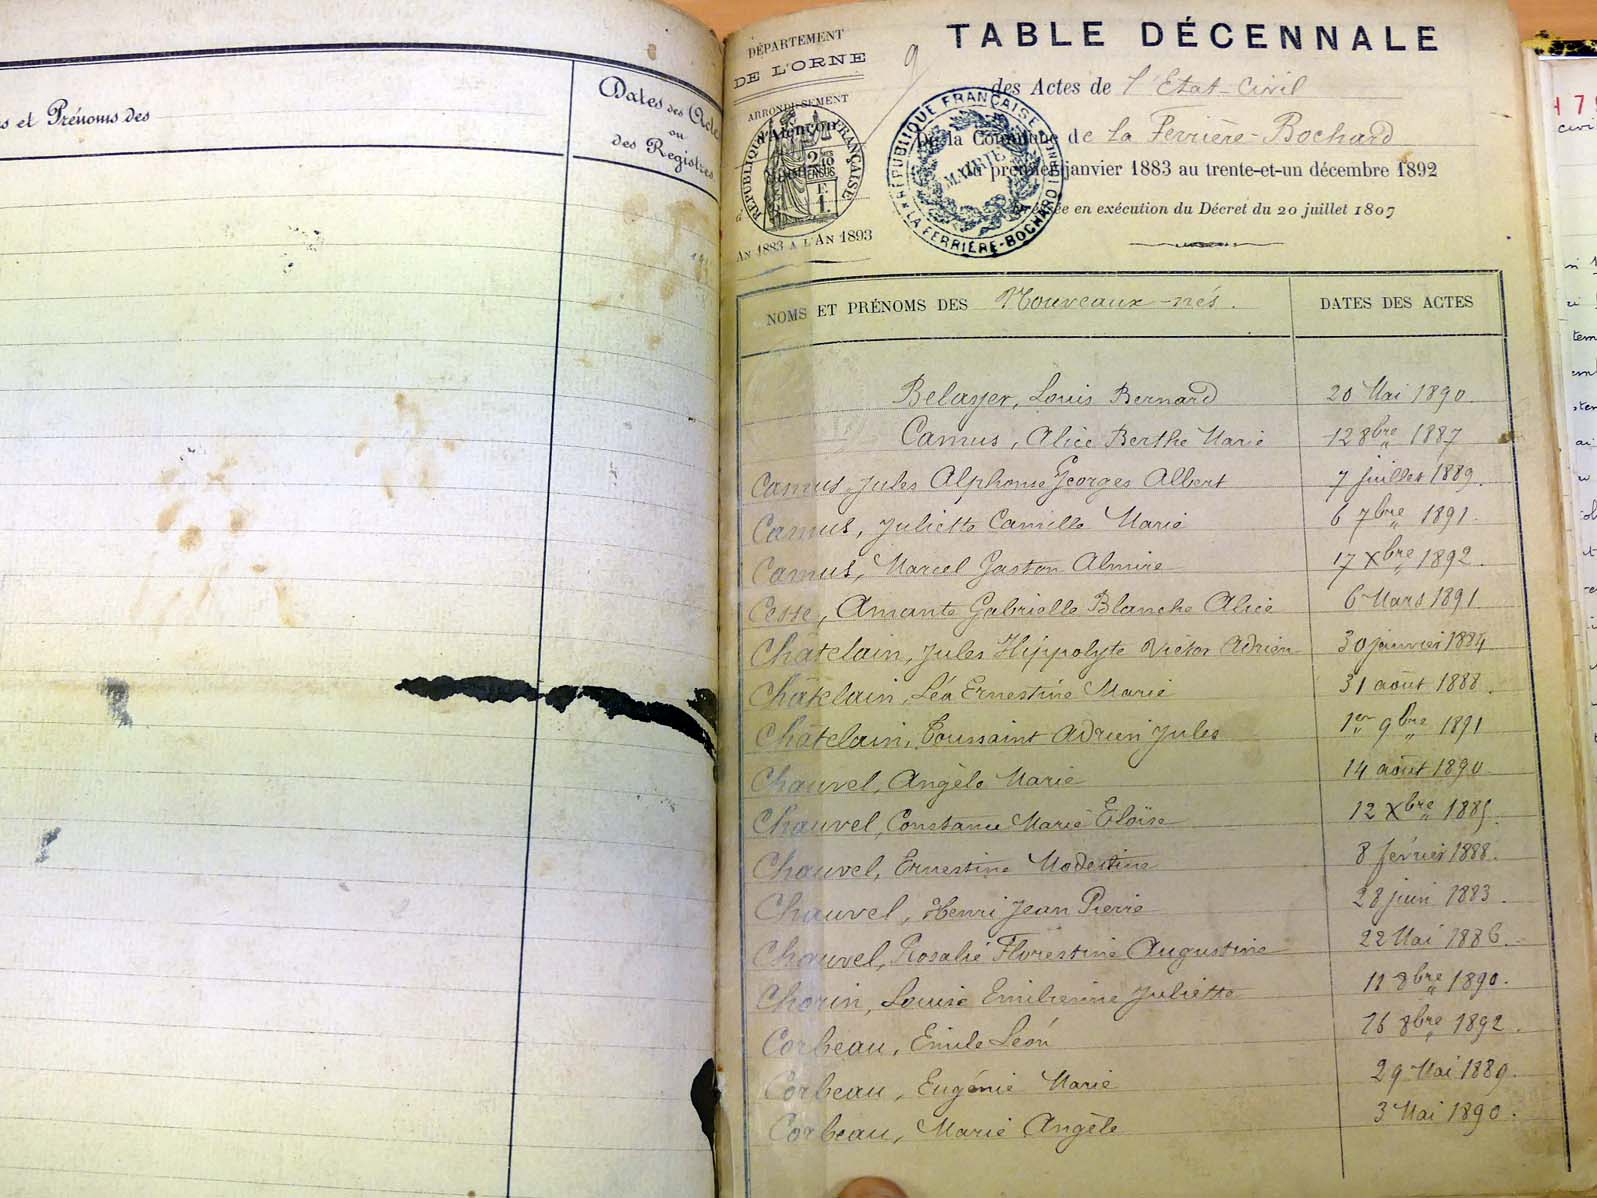 s et Prénoms des
Dates des Actes
ou
des Registres
DÉPARTEMENT
DE L'ORNE
ARRONDISSEMENT
d'Alençon
RÉPUBLIQUE FRANÇAISE
AN 1883 A L'AN 1893
9
TABLE DÉCENNALE
des Actes de l'Etat-Civil
De la Commune de La Ferrière-Bochard
du premier janvier 1883 au trente-et-un décembre 1892
en exécution du Décret du 20 juillet 1807
RÉPUBLIQUE FRANÇAISE
MAIRIE
LA FERRIÈRE-BOCHARD
NOMS ET PRÉNOMS DES Nouveaux-nés. DATES DES ACTES
Belayer, Louis Bernard 20 Mai 1890.
Camus, Alice Berthe Marie 12 8bre 1887
Camus, Jules Alphonse Georges Albert 7 juillet 1889.
Camus, Juliette Camille Marie 6 7bre 1891.
Camus, Marcel Gaston Almire 17 Xbre 1892.
Cesse, Amante Gabrielle Blanche Alice 6 Mars 1891
Châtelain, Jules Hippolyte Victor Adrien 30 janvier 1884
Châtelain, Léa Ernestine Marie 31 août 1888.
Châtelain, Toussaint Adrien Jules 1er 9bre 1891
Chauvel, Angèle Marie 14 août 1890.
Chauvel, Constance Marie Eloïse 12 Xbre 1885.
Chauvel, Ernestine Modestine 8 février 1888.
Chauvel, Henri Jean Pierre 28 juin 1883.
Chauvel, Rosalie Florestine Augustine 22 Mai 1886.
Chorin, Louise Juliette 11 8bre 1890.
Corbeau, Emile Léon 16 8bre 1892.
Corbeau, Eugénie Marie 29 Mai 1889.
Corbeau, Marie Angèle 3 Mai 1890.